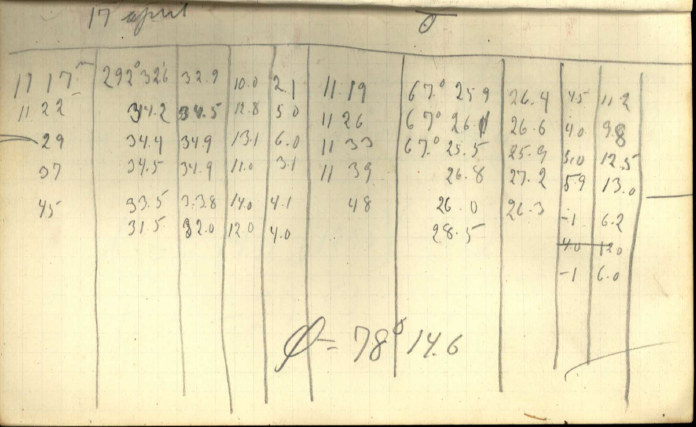 17 april
11 17m 292° 32.6 32.9 10.0 2.1 11 19 67.° 25.9 26.4 4.5 11.2
11 22 34.2 34.5 12.8 5.0 11 26 67° 26.1 26.6 4.0 9.8
29 34.4 34.9 13.1 6.0 11 33 67.° 25.5 25.9 5.0 12.5
37 34.5 34.9 11.0 3.1 11 39 26.8 27.2 5.9 13.0
45 33.5 33.8 14.0 4.1 48 26.0 26.3 -1 6.2
31.5 32.0 12.0 4.0 28.5 4.0 12.0
-1 6.0
φ = 78° 14.6